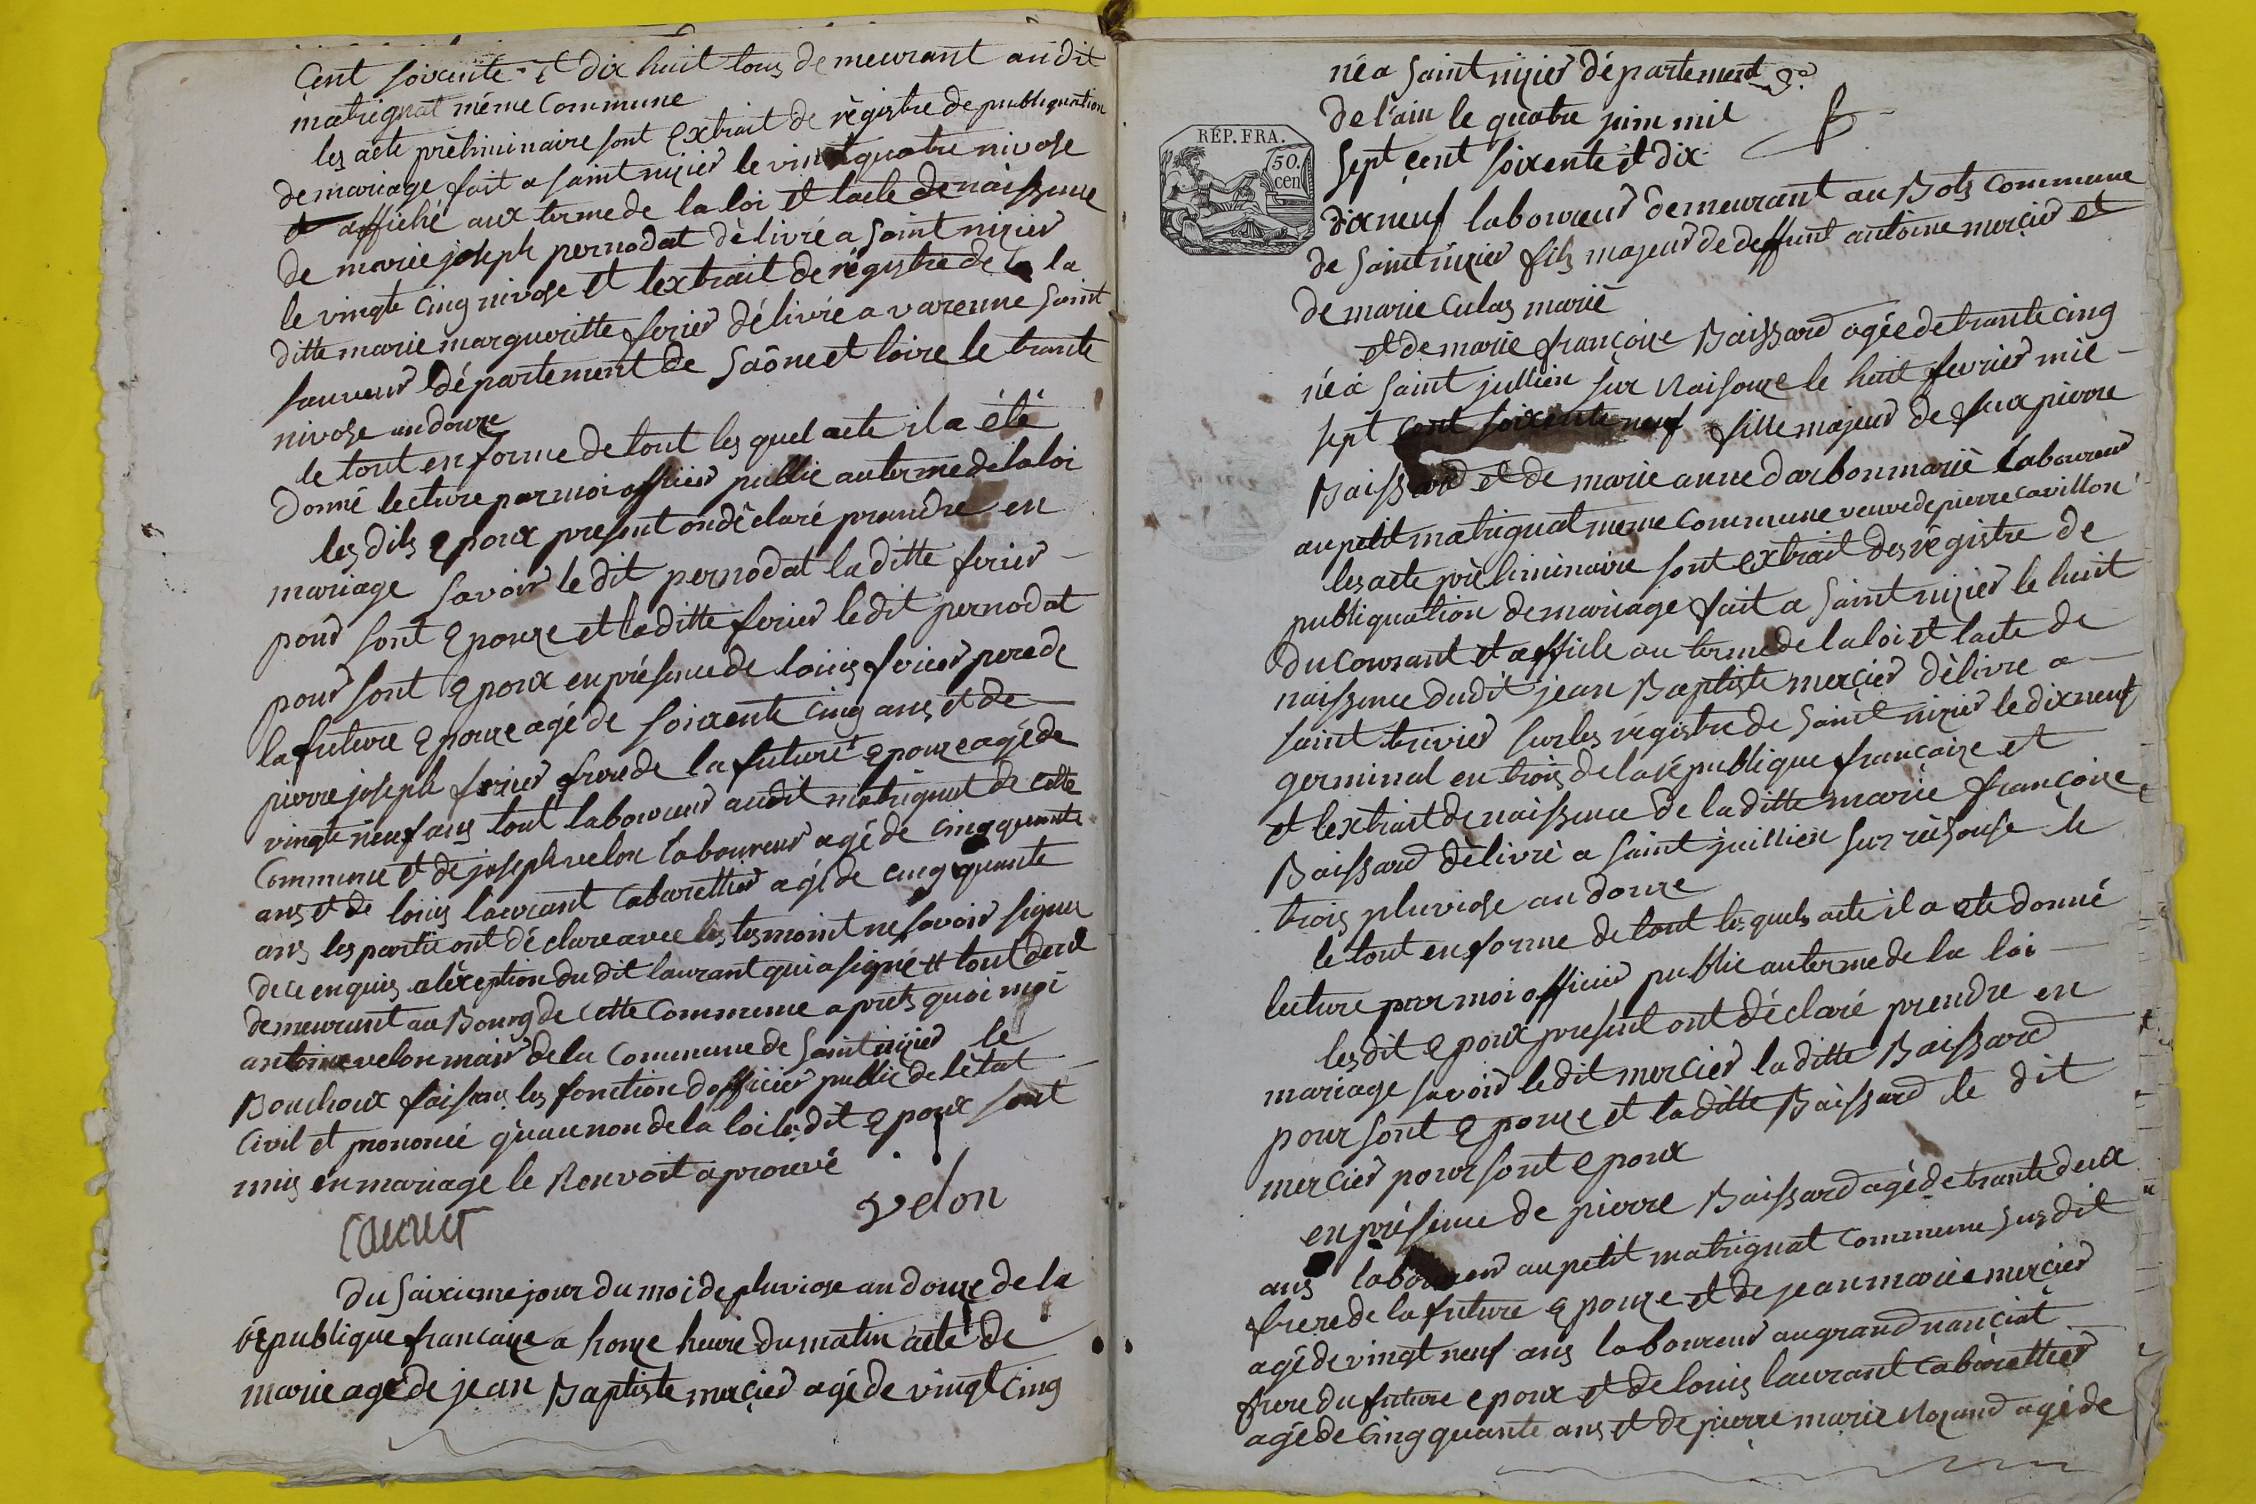 Cent soixente et dix huit tous demeurant audit
matrignat même Commune
les acte préliminaire sont Extrait de régistre de publiquation
de mariage fait a saint nizier le vint quatre nivose
et affiché aux terme de la loi et lacte de naissance
de marie joseph pernodat délivré a saint nizier
le vingte cinq nivose et lextrait de régistre de la
ditte marie margueritte ferier délivré a varenne saint
sauveur département de Saône et loire le trante
nivose an douze
le tout en forme de tout les quel acte il a été
donné lecture par moi officier public au terme de la loi
les dits Epoux present on déclaré prandre en
mariage savoir le dit pernodat la ditte ferier
pour sont Epouze et la ditte ferier le dit pernodat
pour sont Epoux en présence de louis ferier pere de
la future Epouze agé de soixente cinq ans et de
pierre joseph ferier frere de la future Epouze agé de
vingte neuf ans tout laboureur audit matrignat de cette
Commune et de joseph velon laboureur agé de cinqquante
ans et de louis laurant Cabarettier agé de cinqquante
ans les partie ont déclare avec les tesmoint ne savoir signer
de ce enquis a léxception du dit laurant qui a signé et tout deux
demeurant au Bourg de cette Commune aprets quoi moi
antoine velon mair de la Commune de Saint nizier le
Bouchoux faisans les fonction dofficier public de létat
Civil et prononcé quau non de la loi les dit Epoux sont
unis en mariage le Renvoit aprouvé
laurant velon
du saixieme jour du moi de pluviose an douze de la
république francaize a honze heure du matin acte de
marieage de jean Baptiste mercier agé de vingt cinq
né a Saint nizier département
de l'ain le quatre juin mil
sept cent soixente et dix
RÉP. FRA.
50.
cen
dix neuf laboureur demeurant au Bots Commune
de Saint nizier fils majeur de deffunt antoine mercier et
de marie Culas marié
et de marie françoize Baissard agée de trante cinq
né a saint jullien sur Raisouze le huit fevrier mil
sept cent soixente neuf fille majeur de feux pierre
Baissard et de marie anne darbon marié laboureur
au petit matrignat meme Commune veuve de pierre cavillon
les acte préliminaire sont extrait des régistre de
publiquation de mariage fait a Saint nizier le huit
du Courant et affiche au terme de la loi et lacte de
naissance dudit jean Baptiste mercier délivre a
saint trivier sur les régistre de Saint nizier le dix neuf
germinal en trois de la république françaize et
et lextrait de naissance de la ditte marie françoize
Baissard délivré a saint juillien sur résouse le
trois pluviose an douze
le tout en forme de tout les quels acte il a ete donné
lecture par moi officier public au terme de la loi
les dit Epoux present ont déclaré prendre en
mariage savoir le dit mercier la ditte Baissard
pour sont Epouze et la ditte Baissard le dit
mercier pour sont epoux
en présence de pierre Baissard agé de trante deux
ans laboureur au petit matrignat Commune susdit
frere de la future Epouze et de jean marie mercier
agé de vingt neuf ans laboureur au grand nanciat
frere du future epoux et de louis laurant Cabarettier
agé de Cinqquante ans et de pierre marie Rozand agé de